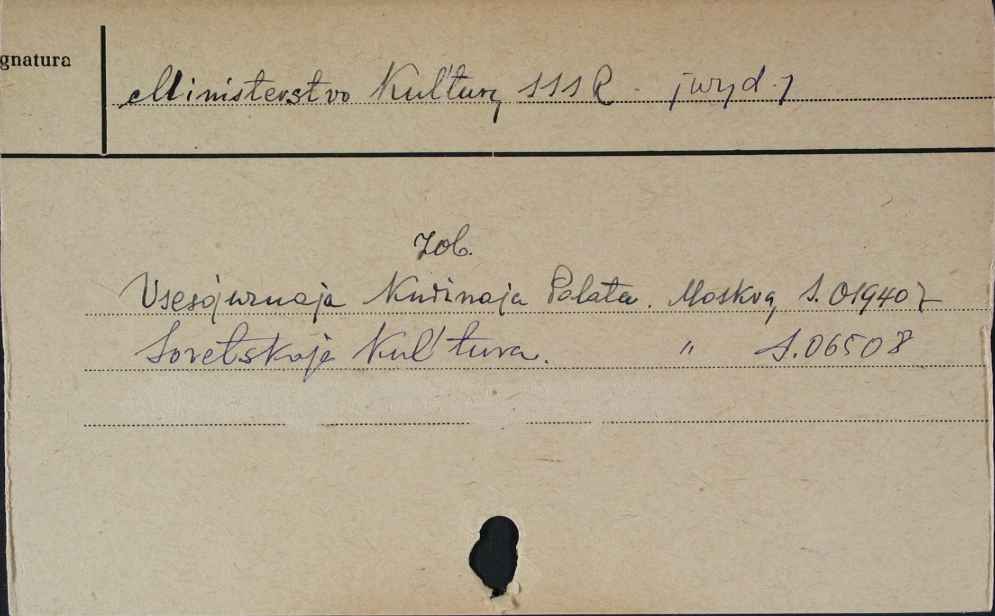 gnatura
Ministerstvo Kul'tury SSSR. juryd.
Zob.
Vsesojuznaja Knižnaja Palata. Moskva, S. 019407
Sovetskaja Kul'tura. " S.06508